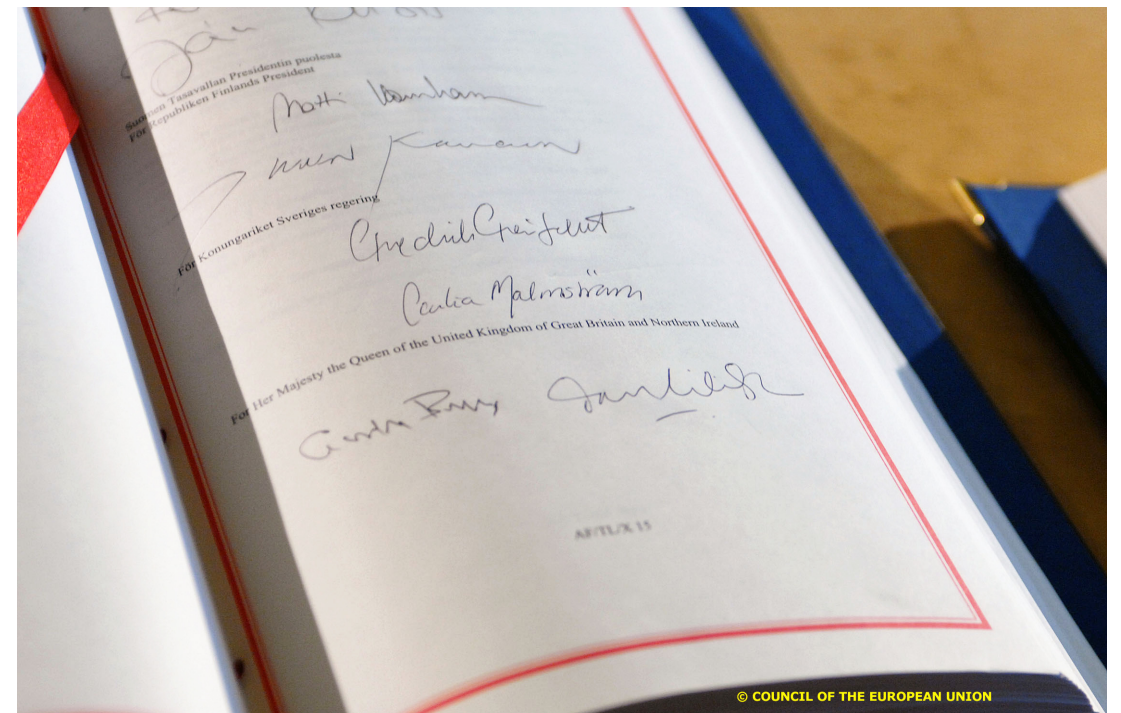 Suomen Tasavallan Presidentin puolesta
För Republiken Finlands President
Matti Vanhanen
För Konungariket Sveriges regering
Fredrik Reinfeldt
Cecilia Malmström
For Her Majesty the Queen of the United Kingdom of Great Britain and Northern Ireland
Gordon Brown
AF/TL/X 15
© COUNCIL OF THE EUROPEAN UNION